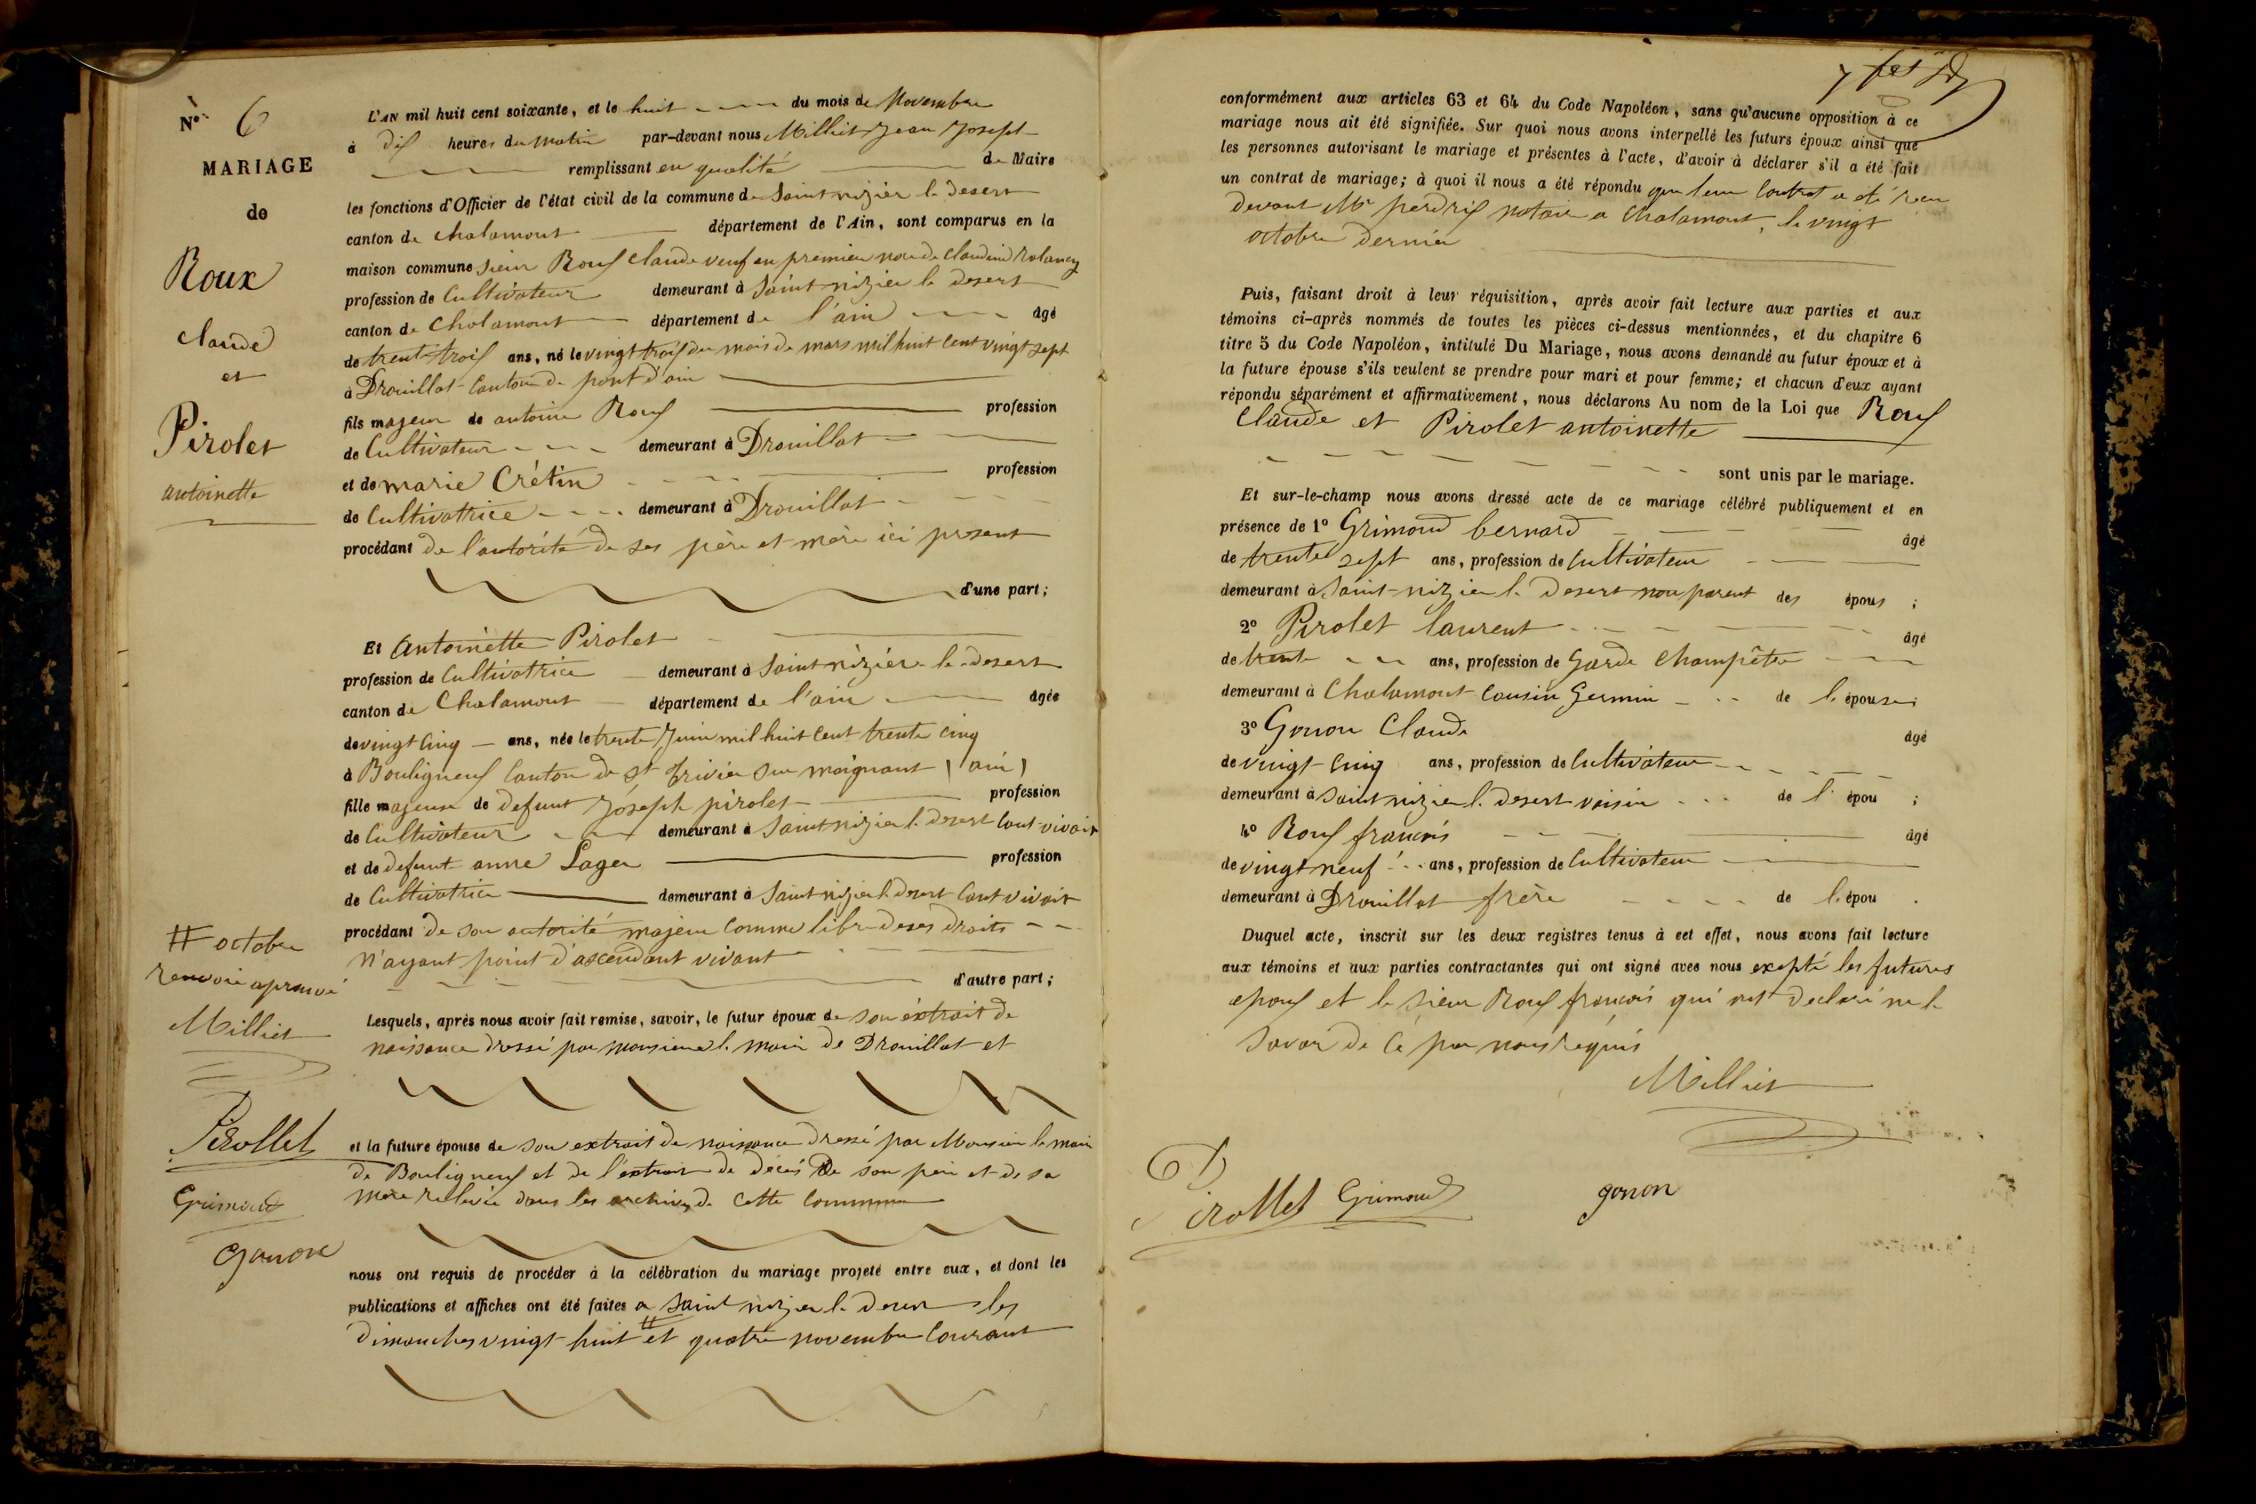 N° 6
MARIAGE
de
Roux
claude
et
Pirolet
antoinette
L'AN mil huit cent soixante, et le huit du mois de Novembre
à dix heures du matin par-devant nous Milliet Jean Joseph
remplissant en qualité de Maire
les fonctions d'Officier de l'état civil de la commune de Saint nizier le desert
canton de chalamont département de l'Ain, sont comparus en la
maison commune sieur Roux claude veuf en premiere noce de claudine
profession de Cultivateur demeurant à Saint nizier le desert
canton de Chalamont département de l'ain âgé
de trente trois ans, né le vingt trois du mois de mars mil huit cent vingt sept
à Drouillat Canton de pont d'ain
fils majeur de antoine Roux profession
de Cultivateur demeurant à Drouillat
et de marie Crétin profession
de Cultivatrice demeurant à Drouillat
procédant de l'autorité de ses père et mère ici present
d'une part;
Et Antoinette Pirolet
profession de Cultivatrice demeurant à Saint nizier le desert
canton de Chalamont département de l'ain âgée
de vingt cinq ans, née le trente Juin mil huit cent trente cinq
à Bouligneux Canton de St trivier sur moignant (ain)
fille majeure de defunt Joseph pirolet profession
de Cultivateur demeurant à Saint nizier le desert tout vivait
et de defunt anne Lager profession
de Cultivatrice demeurant à Saint nizier le desert tout vivait
procédant de son autorité majeur comme libre de ses droits
n'ayant point d'ascendant vivant
d'autre part;
Lesquels, après nous avoir fait remise, savoir, le futur époux de son éxtrait de
naissance dressé par monsieur le maire de Drouillat et
et la future épouse de son extrait de naissance dressé par Monsieur le maire
de Bouligneux et de l'extrait de décés de son père et de sa
mere relevée dans les archives de cette Commune
nous ont requis de procéder à la célébration du mariage projeté entre eux, et dont les
publications et affiches ont été faites a Saint nizier le desert les
dimanches vingt huit # et quatre novembre Courant
# octobre
renvoie aprouvé
Milliet
Pirollet
Grimoud
gonon
conformément aux articles 63 et 64 du Code Napoléon, sans qu'aucune opposition à ce
mariage nous ait été signifiée. Sur quoi nous avons interpellé les futurs époux ainsi que
les personnes autorisant le mariage et présentes à l'acte, d'avoir à déclarer s'il a été fait
un contrat de mariage; à quoi il nous a été répondu que leur Contrat a été recu
devant Me perdrix notaire a Chalamont, le vingt
octobre dernier
Puis, faisant droit à leur réquisition, après avoir fait lecture aux parties et aux
témoins ci-après nommés de toutes les pièces ci-dessus mentionnées, et du chapitre 6
titre 5 du Code Napoléon, intitulé Du Mariage, nous avons demandé au futur époux et à
la future épouse s'ils veulent se prendre pour mari et pour femme; et chacun d'eux ayant
répondu séparément et affirmativement, nous déclarons Au nom de la Loi que Roux
Claude et Pirolet antoinette
sont unis par le mariage.
Et sur-le-champ nous avons dressé acte de ce mariage célébré publiquement et en
présence de 1° Grimoud bernard âgé
de trente sept ans, profession de Cultivateur
demeurant à Saint-nizier le desert non parent des époux ;
2° Pirolet laurent âgé
de trente ans, profession de Garde Champêtre
demeurant à Chalamont Cousin Germin de l'épouse;
3° Gonon Claude âgé
de vingt-cinq ans, profession de Cultivateur
demeurant à Saint nizier le desert voisin de l' épou ;
4° Roux francois âgé
de vingt neuf ans, profession de Cultivateur
demeurant à Drouillat frère de l'épou .
Duquel acte, inscrit sur les deux registres tenus à cet effet, nous avons fait lecture
aux témoins et aux parties contractantes qui ont signé avec nous exepté les futures
epoux et le sieur Roux francois qui ont declaré ne le
Savoir de ce par nous requis
Milliet
Pirollet Grimoud gonon